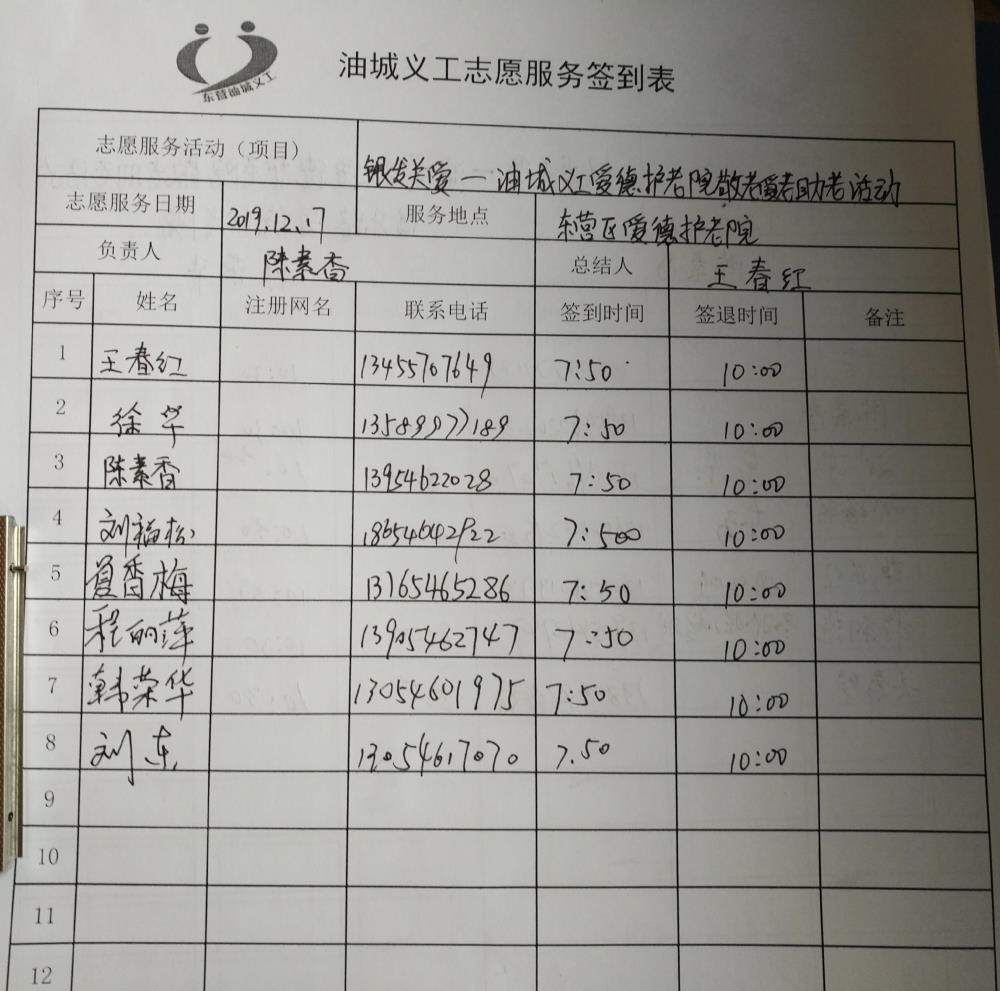 东营油城义工
油城义工志愿服务签到表
志愿服务活动（项目） 银发关爱一油城义工爱德护老院敬老爱老助老活动
志愿服务日期 2019.12.7 服务地点 东营区爱德护老院
负责人 陈素香 总结人 王春红
序号 姓名 注册网名 联系电话 签到时间 签退时间 备注
1 王春红 13455707649 7:50 10:00
2 徐华 13589977189 7:50 10:00
3 陈素香 13954622028 7:50 10:00
4 刘福松 7:500 10:00
5 香梅 13765465286 7:50 10:00
6 程丽萍 13905462747 7:50 10:00
7 韩荣华 13054601975 7:50 10:00
8 刘东 13054617070 7.50 10:00
9
10
11
12